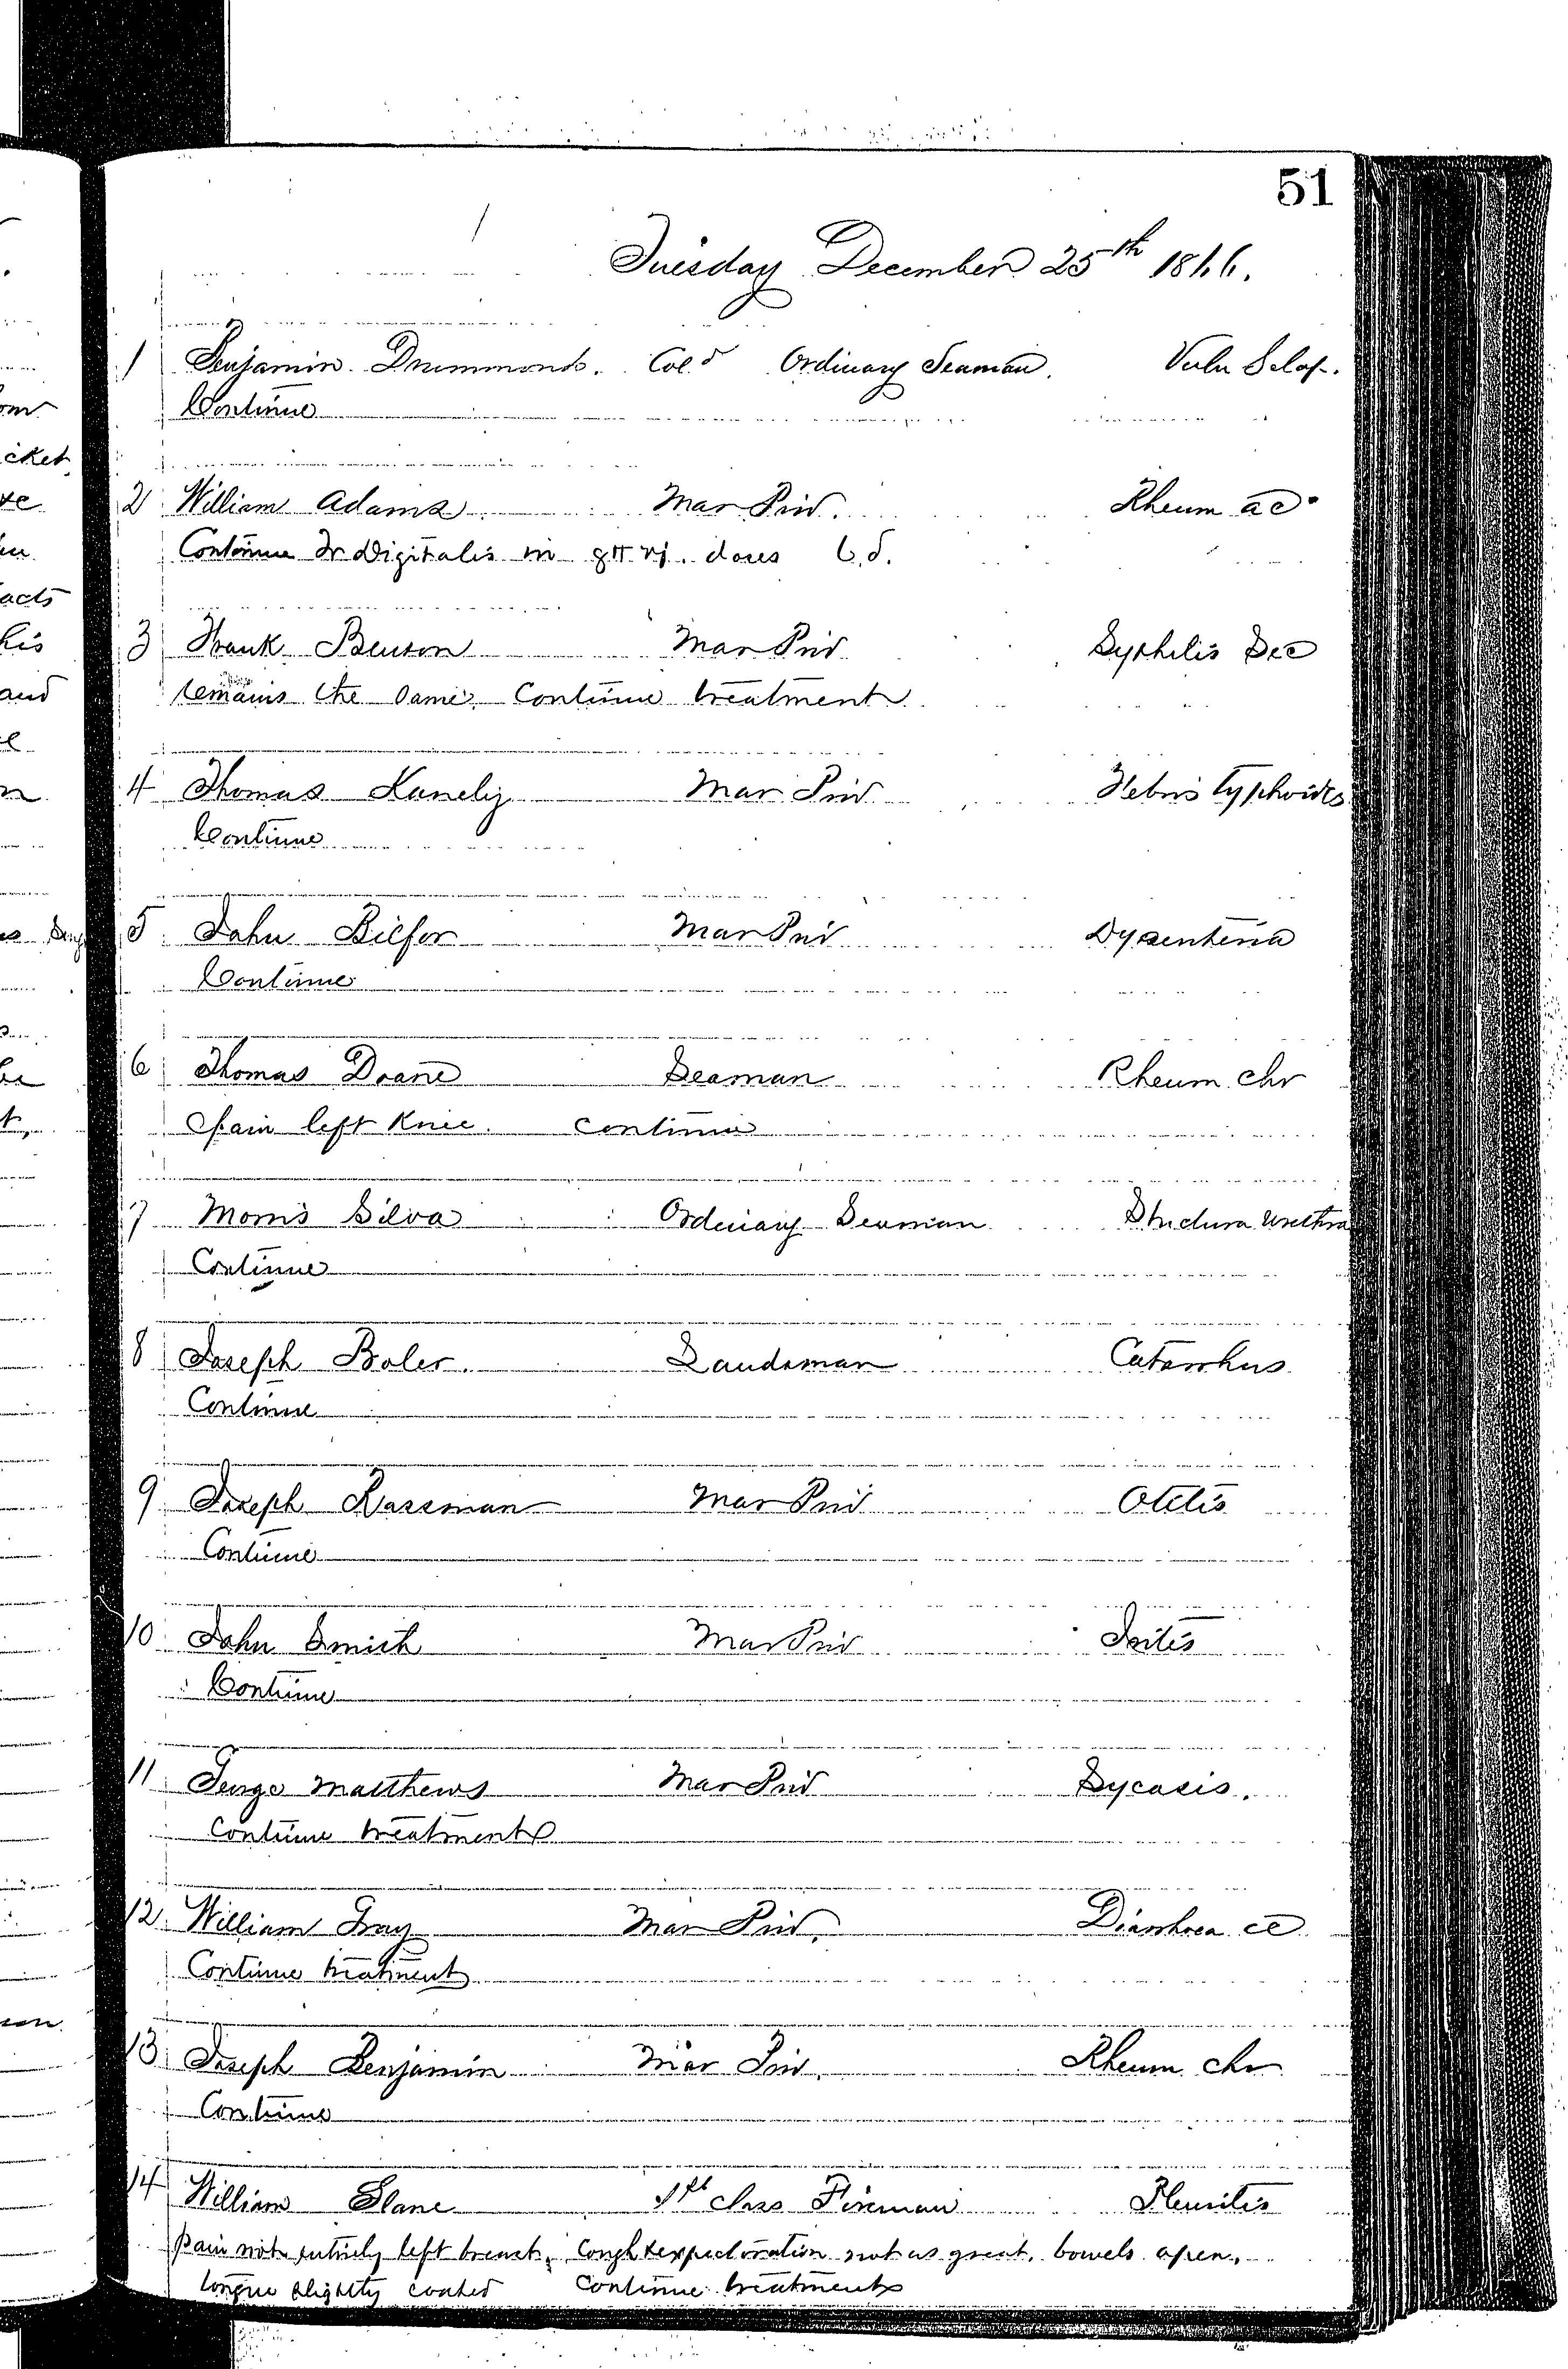 51
Tuesday December 25th 1866.
1 Benjamin Drummond. Cold Ordinary Seaman. Vuln Sclop.
Continue
2 William Adams Mar Priv. Rheum ac
Continue Tr Digitalis in gtt vj. doses t.d.
3 Frank Benson Mar Priv Syphilis Sec
remains the same. Continue treatment
4 Thomas Kanely Mar Priv Febris typhoides
Continue
5 John Bilfor Mar Priv Dysenteria
Continue
6 Thomas Doane Seaman Rheum chr
Pain left Knee. continue
7 Morris Silva Ordinary Seaman Strictura Urethra
Continue
8 Joseph Boler. Landsman Catarrhus
Continue
9 Joseph Rassman Mar Priv Otitis
Continue
10 John Smith Mar Priv Iritis
Continue
11 George Matthews Mar Priv Sycosis.
Continue treatment
12 William Gray Mar Priv. Diarrhoea ac
Continue treatment
13 Joseph Benjamin Mar Priv. Rheum chr
Continue
14 William Slane 1st class Fireman Pleuritis
Pain not entirely left breast, cough & expectoration not as great, bowels open,
tongue slightly coated Continue treatment